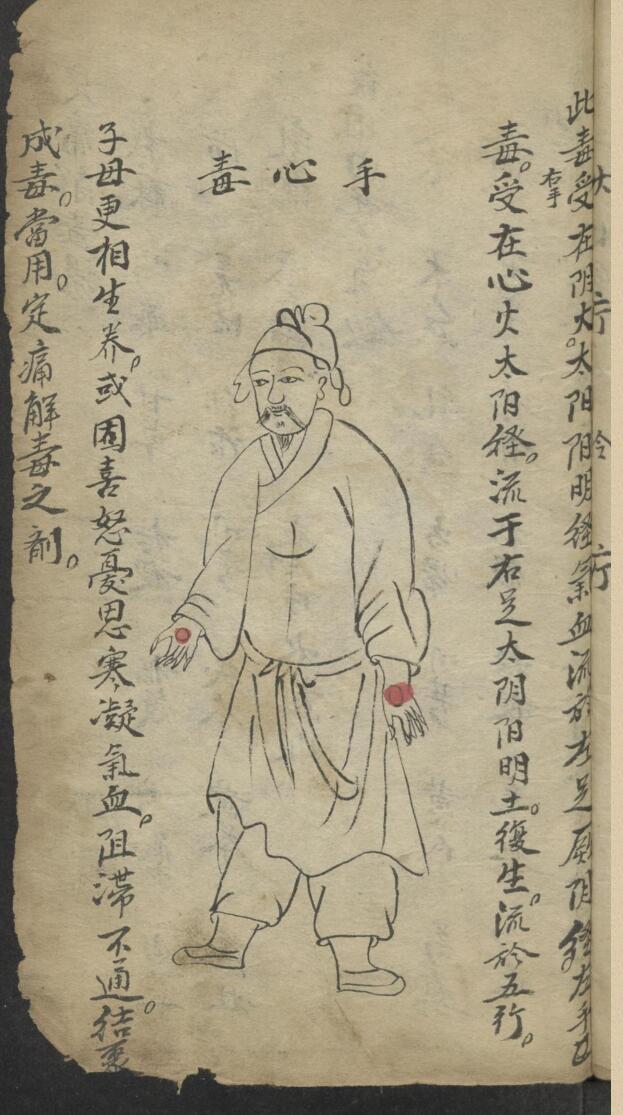 此毒受在阴火。太阳阴明経氣血流於左足厥阴経。左手
右手
毒。受在心火太阳経。流于右足太阴阳明土。復生。流於五行。
手心毒
子母更相生养。或因喜怒憂思寒凝氣血。阻滞不通。结
成毒。當用。定痛解毒之剤。